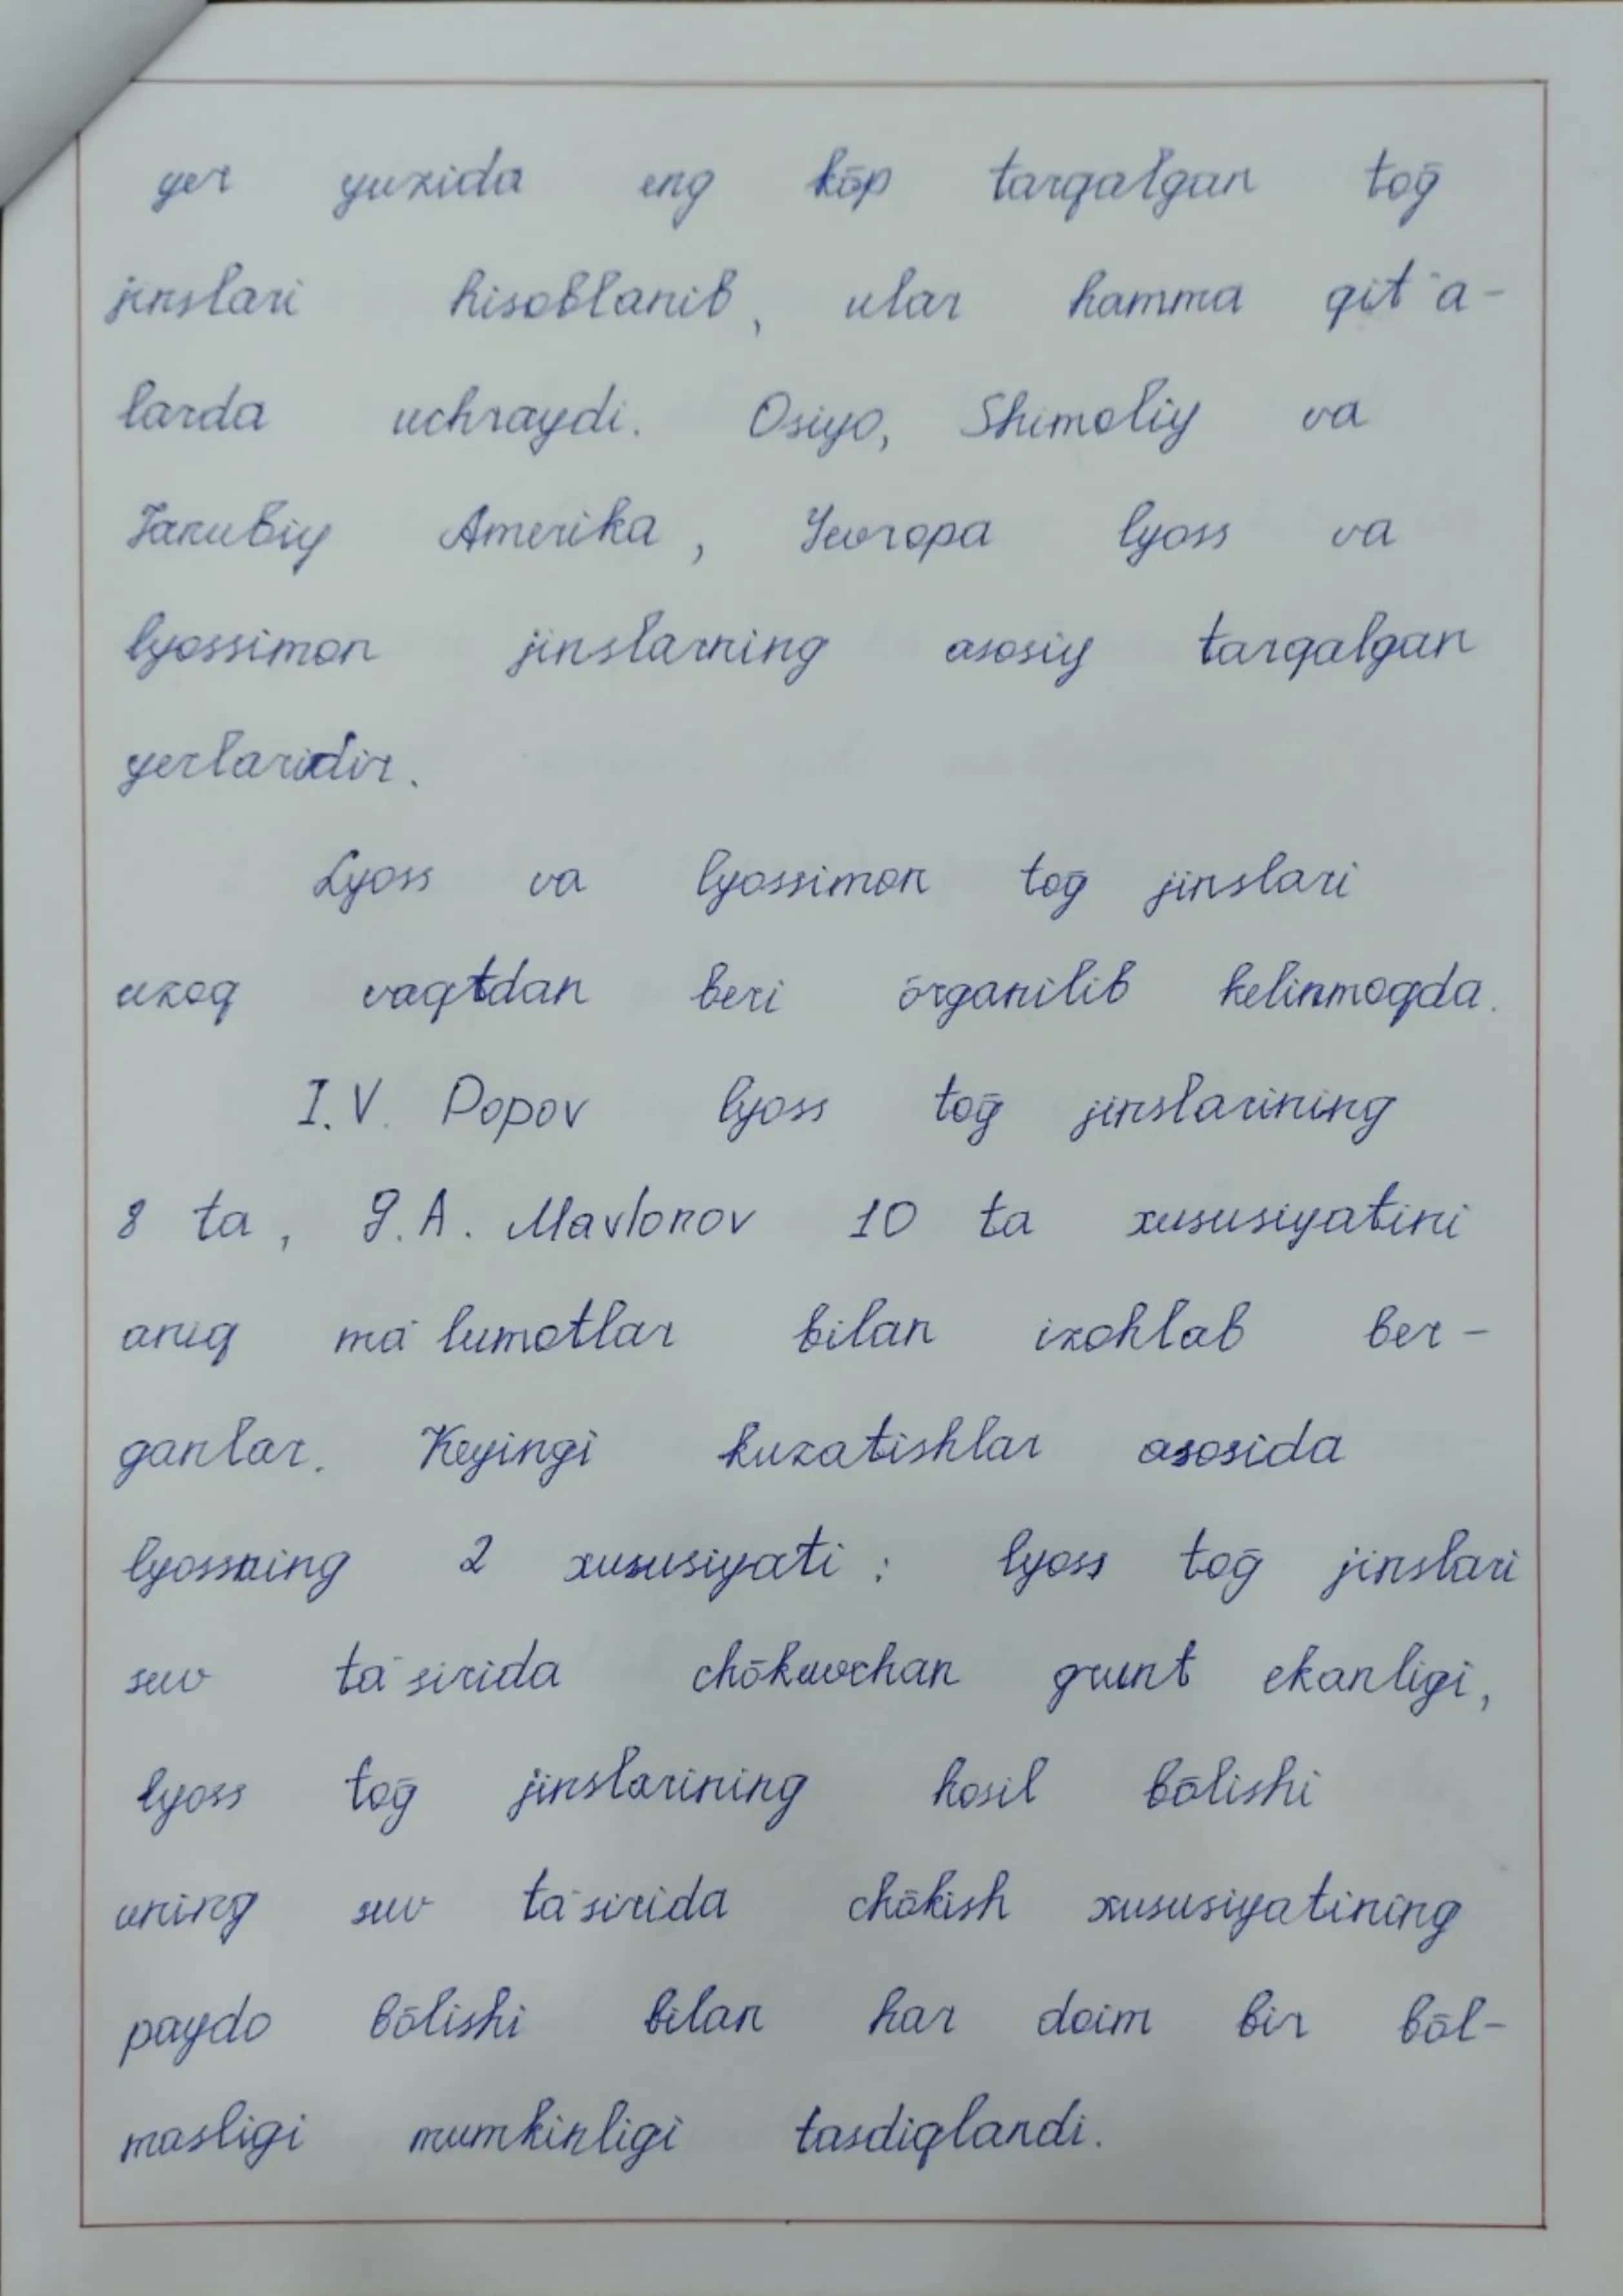 yer yuzida eng kōp tarqalgan toḡ
jinslari hisoblanib, ular hamma qit'a-
larda uchraydi. Osiyo, Shimoliy va
Janubiy Amerika, Yevropa lyoss va
lyossimon jinslarning asosiy tarqalgan
yerlaridir.
Lyoss va lyossimon toḡ jinslari
uzoq vaqtdan beri ōrganilib kelinmoqda.
I.V. Popov lyoss toḡ jinslarining
8 ta, G.A. Mavlonov 10 ta xususiyatini
aniq ma'lumotlar bilan izohlab ber-
ganlar. Keyingi kuzatishlar asosida
lyossning 2 xususiyati: lyoss toḡ jinslari
suv ta'sirida chōkuvchan grunt ekanligi,
lyoss toḡ jinslarining hosil bōlishi
uning suv ta'sirida chōkish xususiyatining
paydo bōlishi bilan har doim bir bōl-
masligi mumkinligi tasdiqlandi.